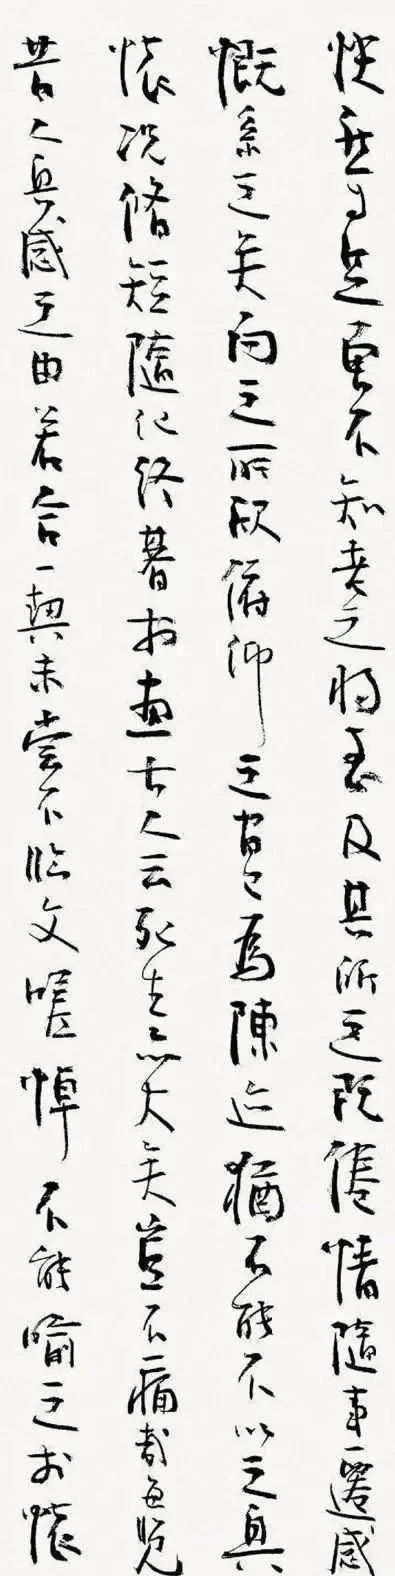 快然自足曾不知老之將至及其所之既倦情隨事遷感
慨系之矣向之所欣俛仰之間以為陳迹猶不能不以之興
懷況脩短隨化終期於盡古人云死生亦大矣豈不痛哉每覽
昔人興感之由若合一契未嘗不臨文嗟悼不能喻之於懷